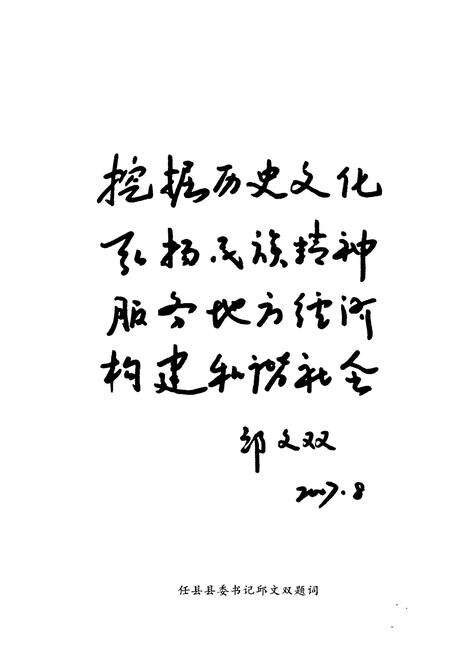 挖掘历史文化
弘扬民族精神
服务地方经济
构建和谐社会
邱文双
2007.8
任县县委书记邱文双题词